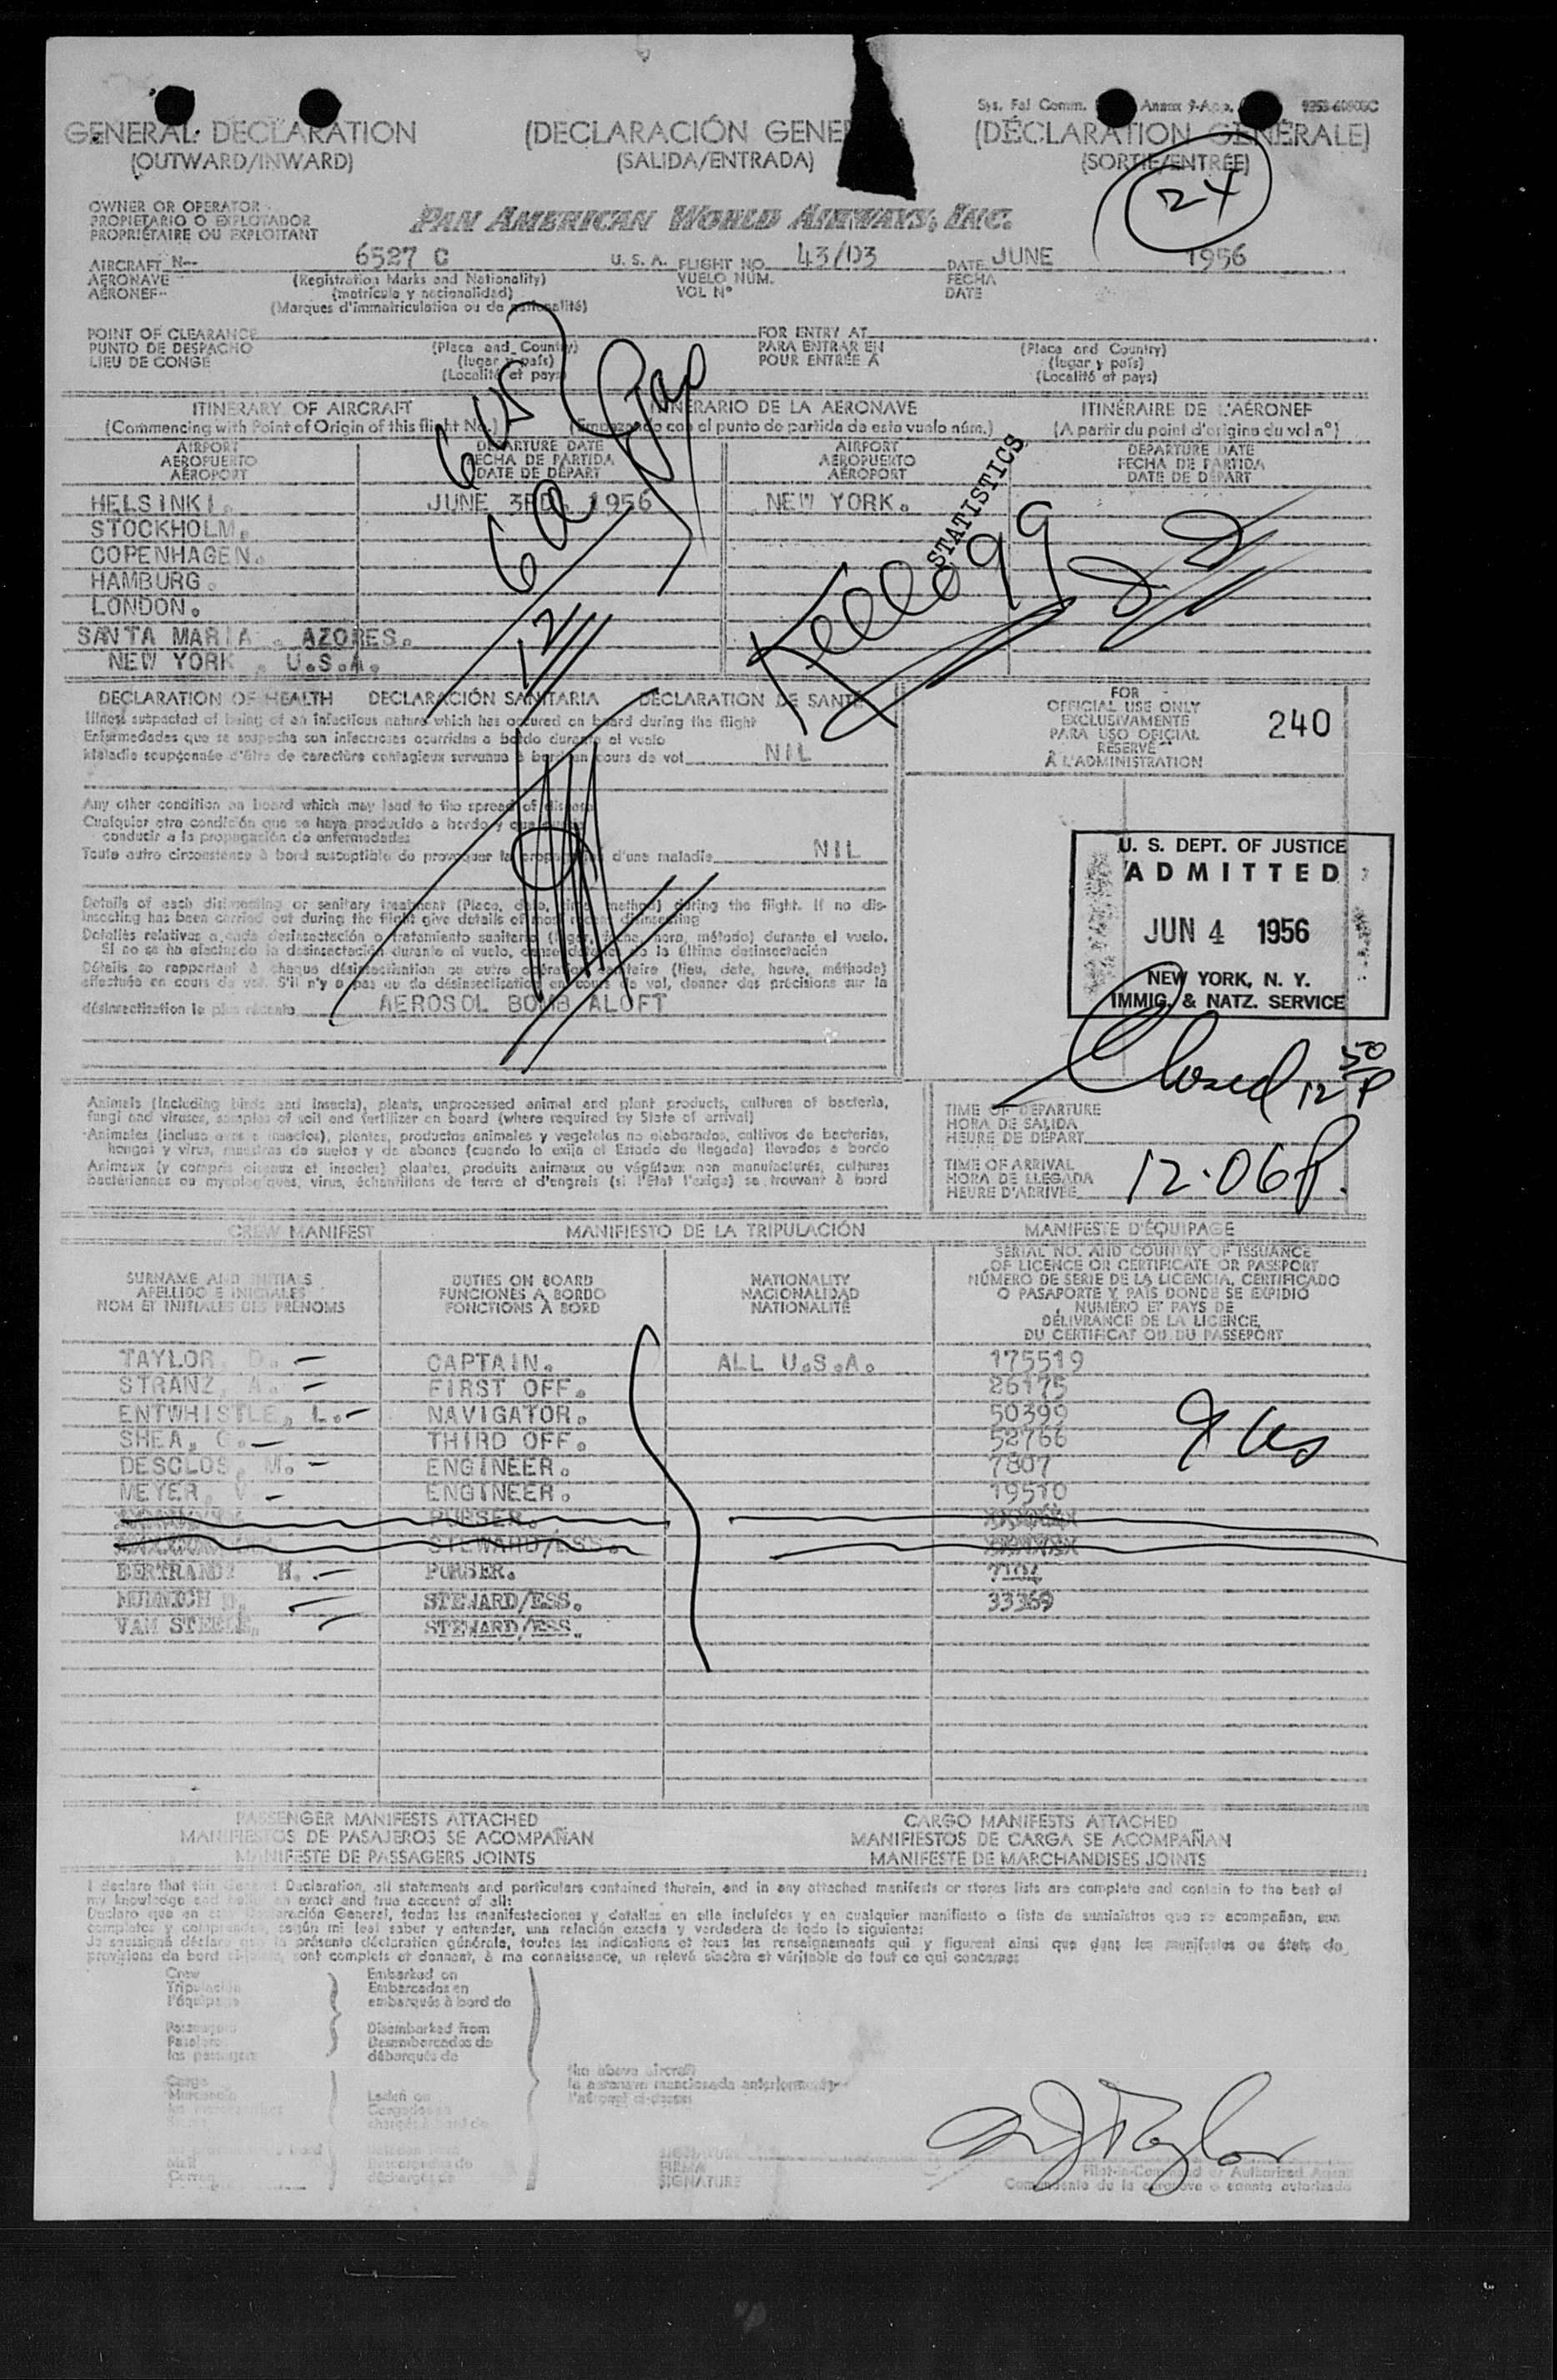 Sys. Fal Comm. Annex 9-App. 9353-60506C
GENERAL DECLARATION (DECLARACIÓN GENE (DÉCLARATION GÉNÉRALE)
(OUTWARD/INWARD) (SALIDA/ENTRADA) (SORTIE/ENTRÉE)
24
OWNER OR OPERATOR
PROPIETARIO O EXPLOTADOR
PROPRIÉTAIRE OU EXPLOITANT
PAN AMERICAN WORLD AIRWAYS, INC.
AIRCRAFT N-- 6527 C U. S. A. FLIGHT NO. 43/03 DATE JUNE 1956
AERONAVE (Registration Marks and Nationality) VUELO NÚM. FECHA
AÉRONEF (matrícula y nacionalidad) VOL Nº DATE
(Marques d'immatriculation ou de nationalité)
POINT OF CLEARANCE FOR ENTRY AT
PUNTO DE DESPACHO (Place and Country) PARA ENTRAR EN (Place and Country)
LIEU DE CONGÉ (lugar y país) POUR ENTRÉE À (lugar y país)
(Localité et pays) (Localité et pays)
ITINERARY OF AIRCRAFT ITINERARIO DE LA AERONAVE ITINÉRAIRE DE L'AÉRONEF
(Commencing with Point of Origin of this flight No.) (Empezando con el punto de partida de este vuelo núm.) (A partir du point d'origine du vol nº)
AIRPORT DEPARTURE DATE AIRPORT DEPARTURE DATE
AEROPUERTO FECHA DE PARTIDA AEROPUERTO FECHA DE PARTIDA
AÉROPORT DATE DE DÉPART AÉROPORT DATE DE DÉPART
HELSINKI. JUNE 3RD. 1956 NEW YORK.
STOCKHOLM.
COPENHAGEN.
HAMBURG.
LONDON.
SANTA MARIA . AZORES.
NEW YORK . U.S.A.
STATISTICS
Kellogg
12
DECLARATION OF HEALTH DECLARACIÓN SANITARIA DÉCLARATION DE SANTÉ
Illness suspected of being of an infectious nature which has occured on board during the flight
Enfermedades que se sospecha son infecciosas ocurridas a bordo durante el vuelo
Maladie soupçonnée d'être de caractère contagieux survenue à bord en cours de vol NIL
FOR
OFFICIAL USE ONLY
EXCLUSIVAMENTE
PARA USO OFICIAL
RÉSERVÉ
À L'ADMINISTRATION
240
Any other condition on board which may lead to the spread of disease
Cualquier otra condición que se haya producido a bordo y que pueda
conducir a la propagación de enfermedades
Toute autre circonstance à bord susceptible de provoquer la propagation d'une maladie NIL
U. S. DEPT. OF JUSTICE
ADMITTED
JUN 4 1956
NEW YORK, N. Y.
IMMIG. & NATZ. SERVICE
Details of each disinsecting or sanitary treatment (Place, date, time, method) during the flight. If no dis-
insecting has been carried out during the flight give details of most recent disinsecting
Detalles relativos a cada desinsectación o tratamiento sanitario (lugar, fecha, hora, método) durante el vuelo.
Si no se ha efectuado la desinsectación durante el vuelo, dense detalles de la última desinsectación
Détails se rapportant à chaque désinsectisation ou autre opération sanitaire (lieu, date, heure, méthode)
effectuée en cours de vol. S'il n'y a pas eu de désinsectisation en cours de vol, donner des précisions sur la
désinsectisation la plus récente AEROSOL BOMB ALOFT
Closed 12 50 P
Animals (including birds and insects), plants, unprocessed animal and plant products, cultures of bacteria,
fungi and viruses, samples of soil and fertilizer on board (where required by State of arrival)
Animales (incluso aves e insectos), plantas, productos animales y vegetales no elaborados, cultivos de bacterias,
hongos y virus, muestras de suelos y de abonos (cuando lo exija el Estado de llegada) llevados a bordo
Animaux (y compris oiseaux et insectes) plantes, produits animaux ou végétaux non manufacturés, cultures
bactériennes ou mycologiques, virus, échantillons de terre et d'engrais (si l'État l'exige) se trouvant à bord
TIME OF DEPARTURE
HORA DE SALIDA
HEURE DE DÉPART
TIME OF ARRIVAL
HORA DE LLEGADA
HEURE D'ARRIVÉE 12.06 P.
CREW MANIFEST MANIFIESTO DE LA TRIPULACIÓN MANIFESTE D'ÉQUIPAGE
SURNAME AND INITIALS DUTIES ON BOARD NATIONALITY SERIAL NO. AND COUNTRY OF ISSUANCE
APELLIDO E INICIALES FUNCIONES A BORDO NACIONALIDAD OF LICENCE OR CERTIFICATE OR PASSPORT
NOM ET INITIALES DES PRÉNOMS FONCTIONS À BORD NATIONALITÉ NÚMERO DE SERIE DE LA LICENCIA, CERTIFICADO
O PASAPORTE Y PAÍS DONDE SE EXPIDIÓ
NUMÉRO ET PAYS DE
DÉLIVRANCE DE LA LICENCE,
DU CERTIFICAT OU DU PASSEPORT
TAYLOR, D. - CAPTAIN. ALL U.S.A. 175519
STRANZ, A. - FIRST OFF. 26175
ENTWHISTLE, L. - NAVIGATOR. 50399
SHEA, C. - THIRD OFF. 52766
DESCLOS, M. - ENGINEER. 7807
MEYER, V - ENGINEER. 19510
PURSER.
STEWARD/ESS.
BERTRAND H. - PURSER.
STEWARD/ESS. 33369
VAN STEELE. - STEWARD/ESS.
9 US
PASSENGER MANIFESTS ATTACHED CARGO MANIFESTS ATTACHED
MANIFIESTOS DE PASAJEROS SE ACOMPAÑAN MANIFIESTOS DE CARGA SE ACOMPAÑAN
MANIFESTE DE PASSAGERS JOINTS MANIFESTE DE MARCHANDISES JOINTS
I declare that this General Declaration, all statements and particulars contained therein, and in any attached manifests or stores lists are complete and contain to the best of
my knowledge and belief an exact and true account of all:
Declaro que en esta Declaración General, todas las manifestaciones y detalles en ella incluídos y en cualquier manifiesto o lista de suministros que se acompañan, son
completos y comprenden, según mi leal saber y entender, una relación exacta y verdadera de todo lo siguiente:
Je soussigné déclare que la présente déclaration générale, toutes les indications et tous les renseignements qui y figurent ainsi que dans les manifestes ou états de
provisions de bord ci-joints, sont complets et donnent, à ma connaissance, un relevé sincère et véritable de tout ce qui concerne:
Crew Embarked on
Tripulación Embarcados en
l'équipage embarqués à bord de
Passengers Disembarked from
Pasajeros Desembarcados de
les passagers débarqués de
the above aircraft
la aeronave mencionada anteriormente
l'aéronef ci-dessus
Cargo
Mercancía Laden on
Cargados en
chargés à bord de
Mail
Correo
SIGNATURE
FIRMA
SIGNATURE
Taylor
Pilot-in-Command or Authorized Agent
Comandante de la aeronave o agente autorizado